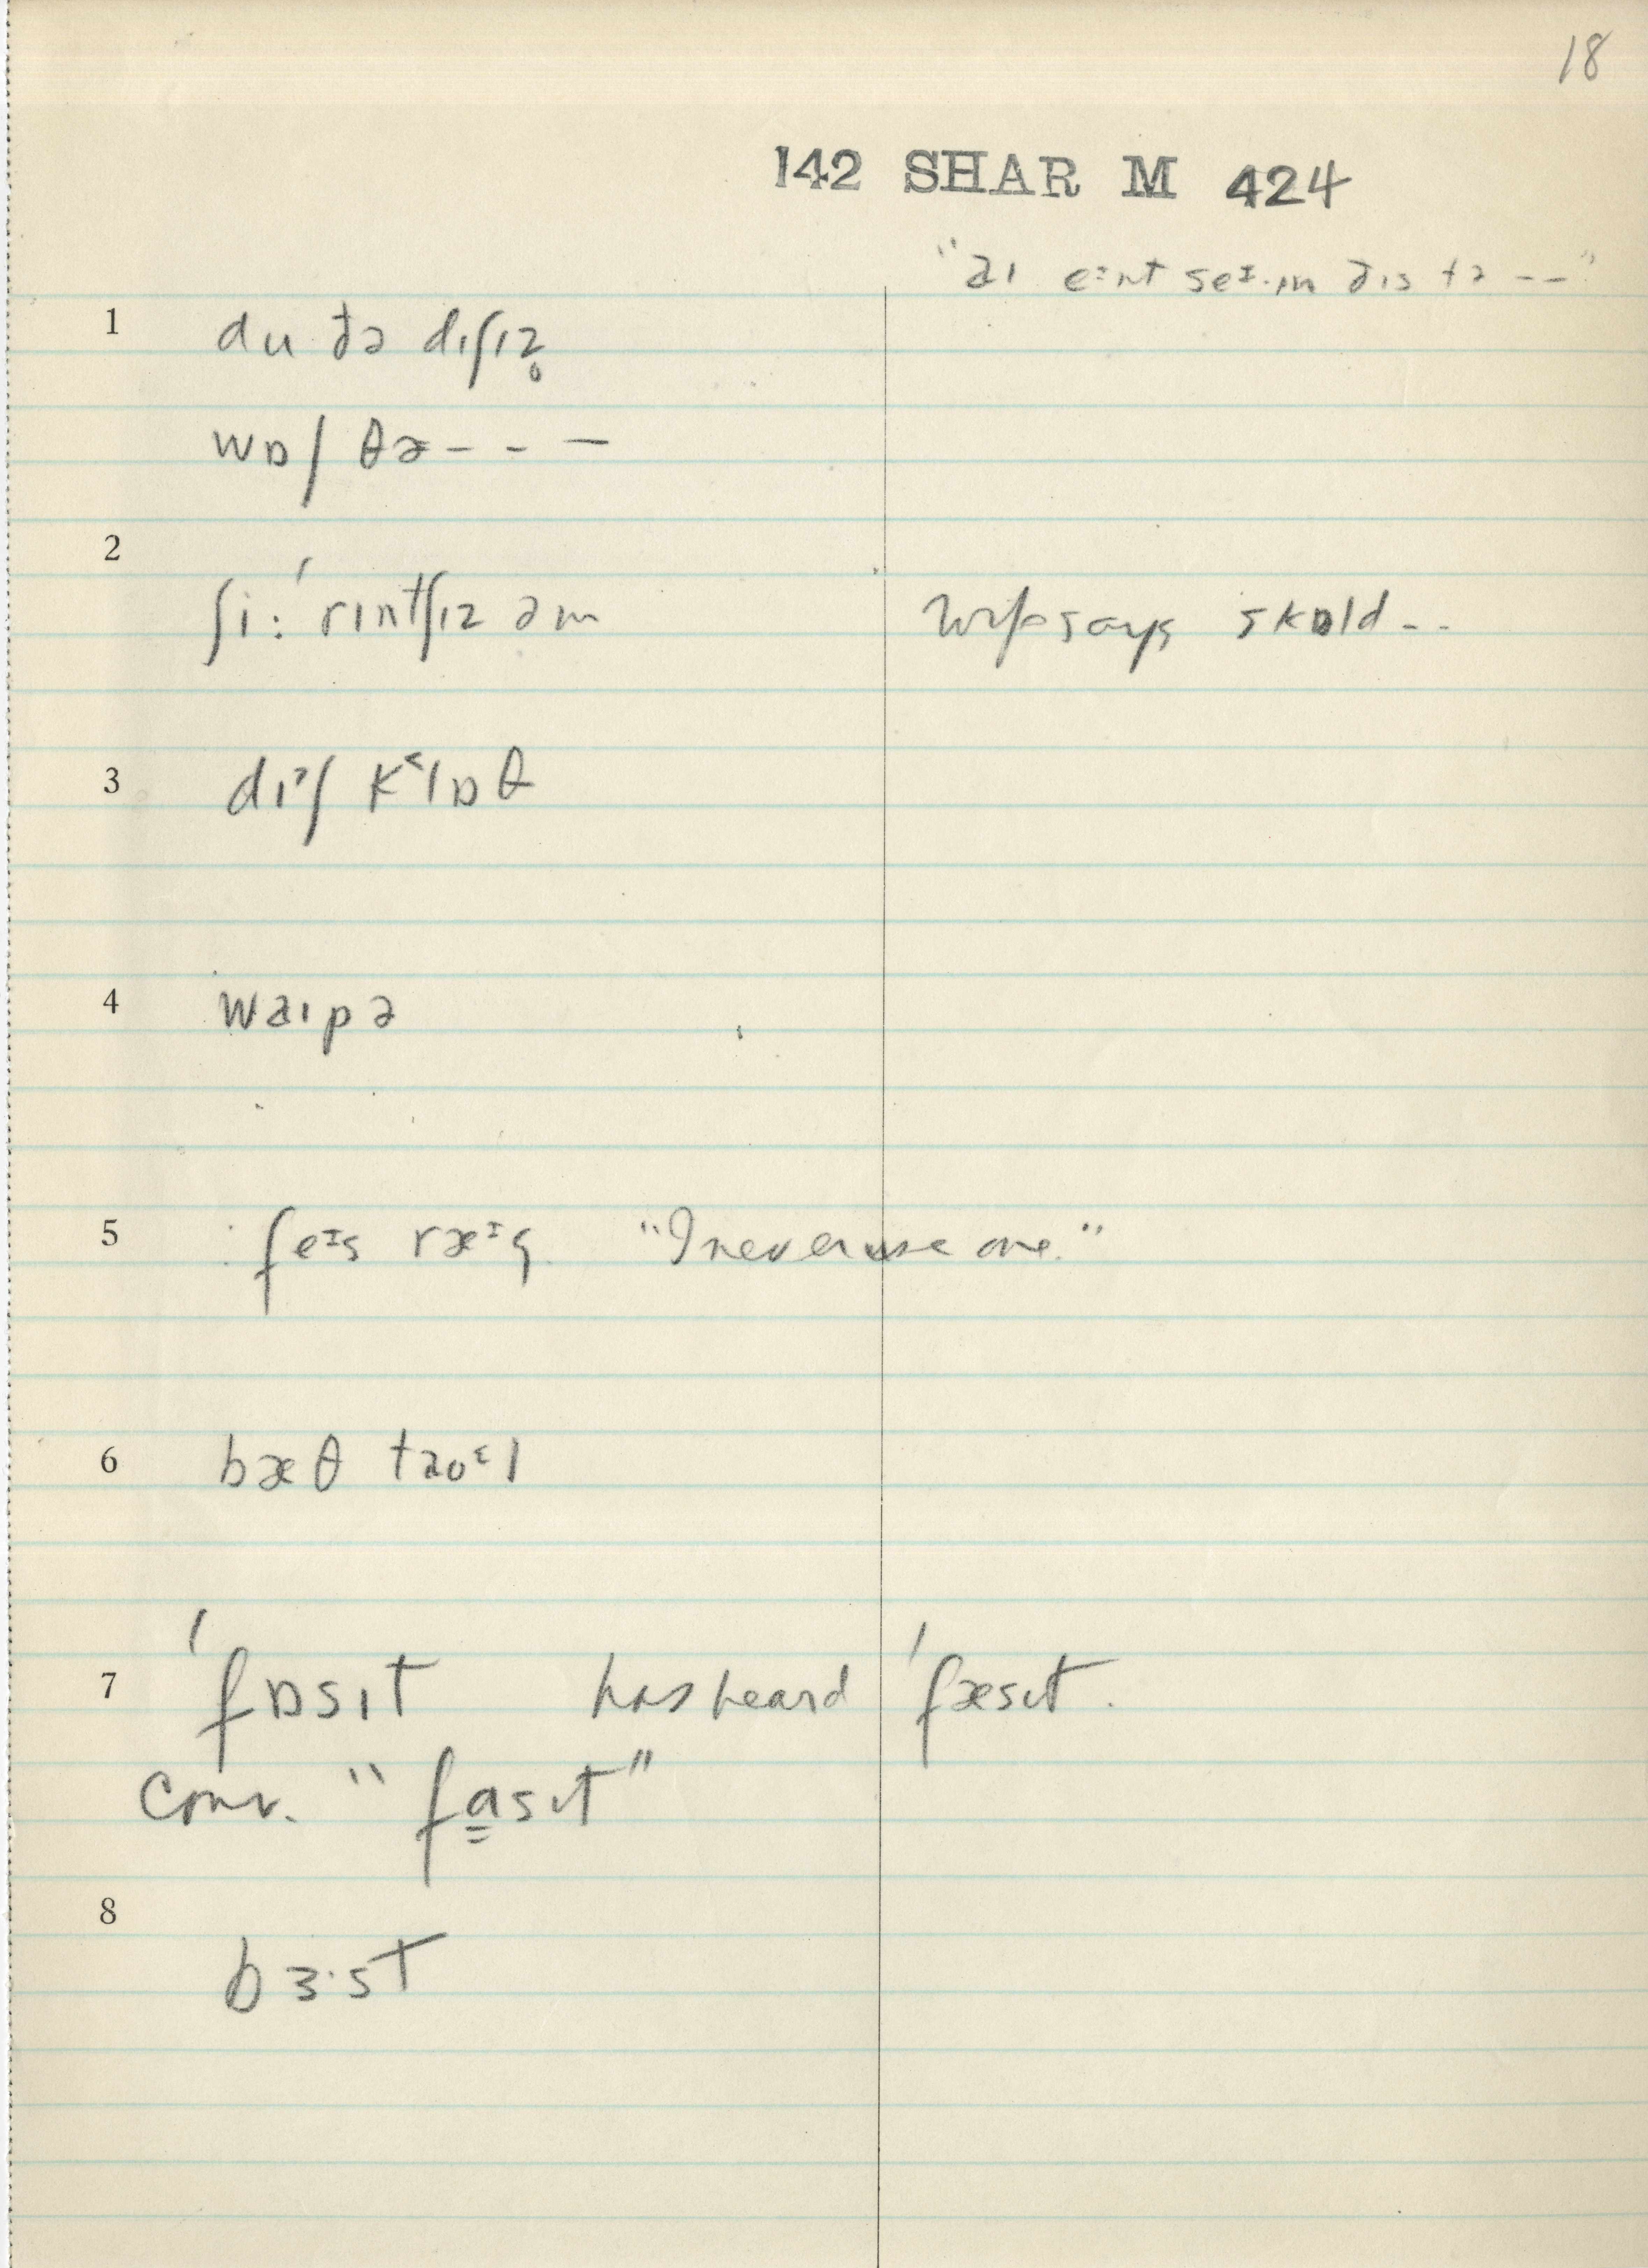 18
142 SHAR M 424
"aɪ eᶦnt seᶦ·ɪn ðɪs tə --"
1 du ðə dɪʃɪz̥
wɒʃ ðə - - -
2 ʃi: ˈrɪntʃɪz əm wife says skɒld --
3 dɪˀʃ k˂lɒθ
4 waɪpə
5 feᶦs ræᶦg "I never use one."
6 bæθ taʊᵋl
7 ˈfɒsɪt has heard ˈfæsɪt.
conv. "fa̳sɪt"
8 bɜ·st